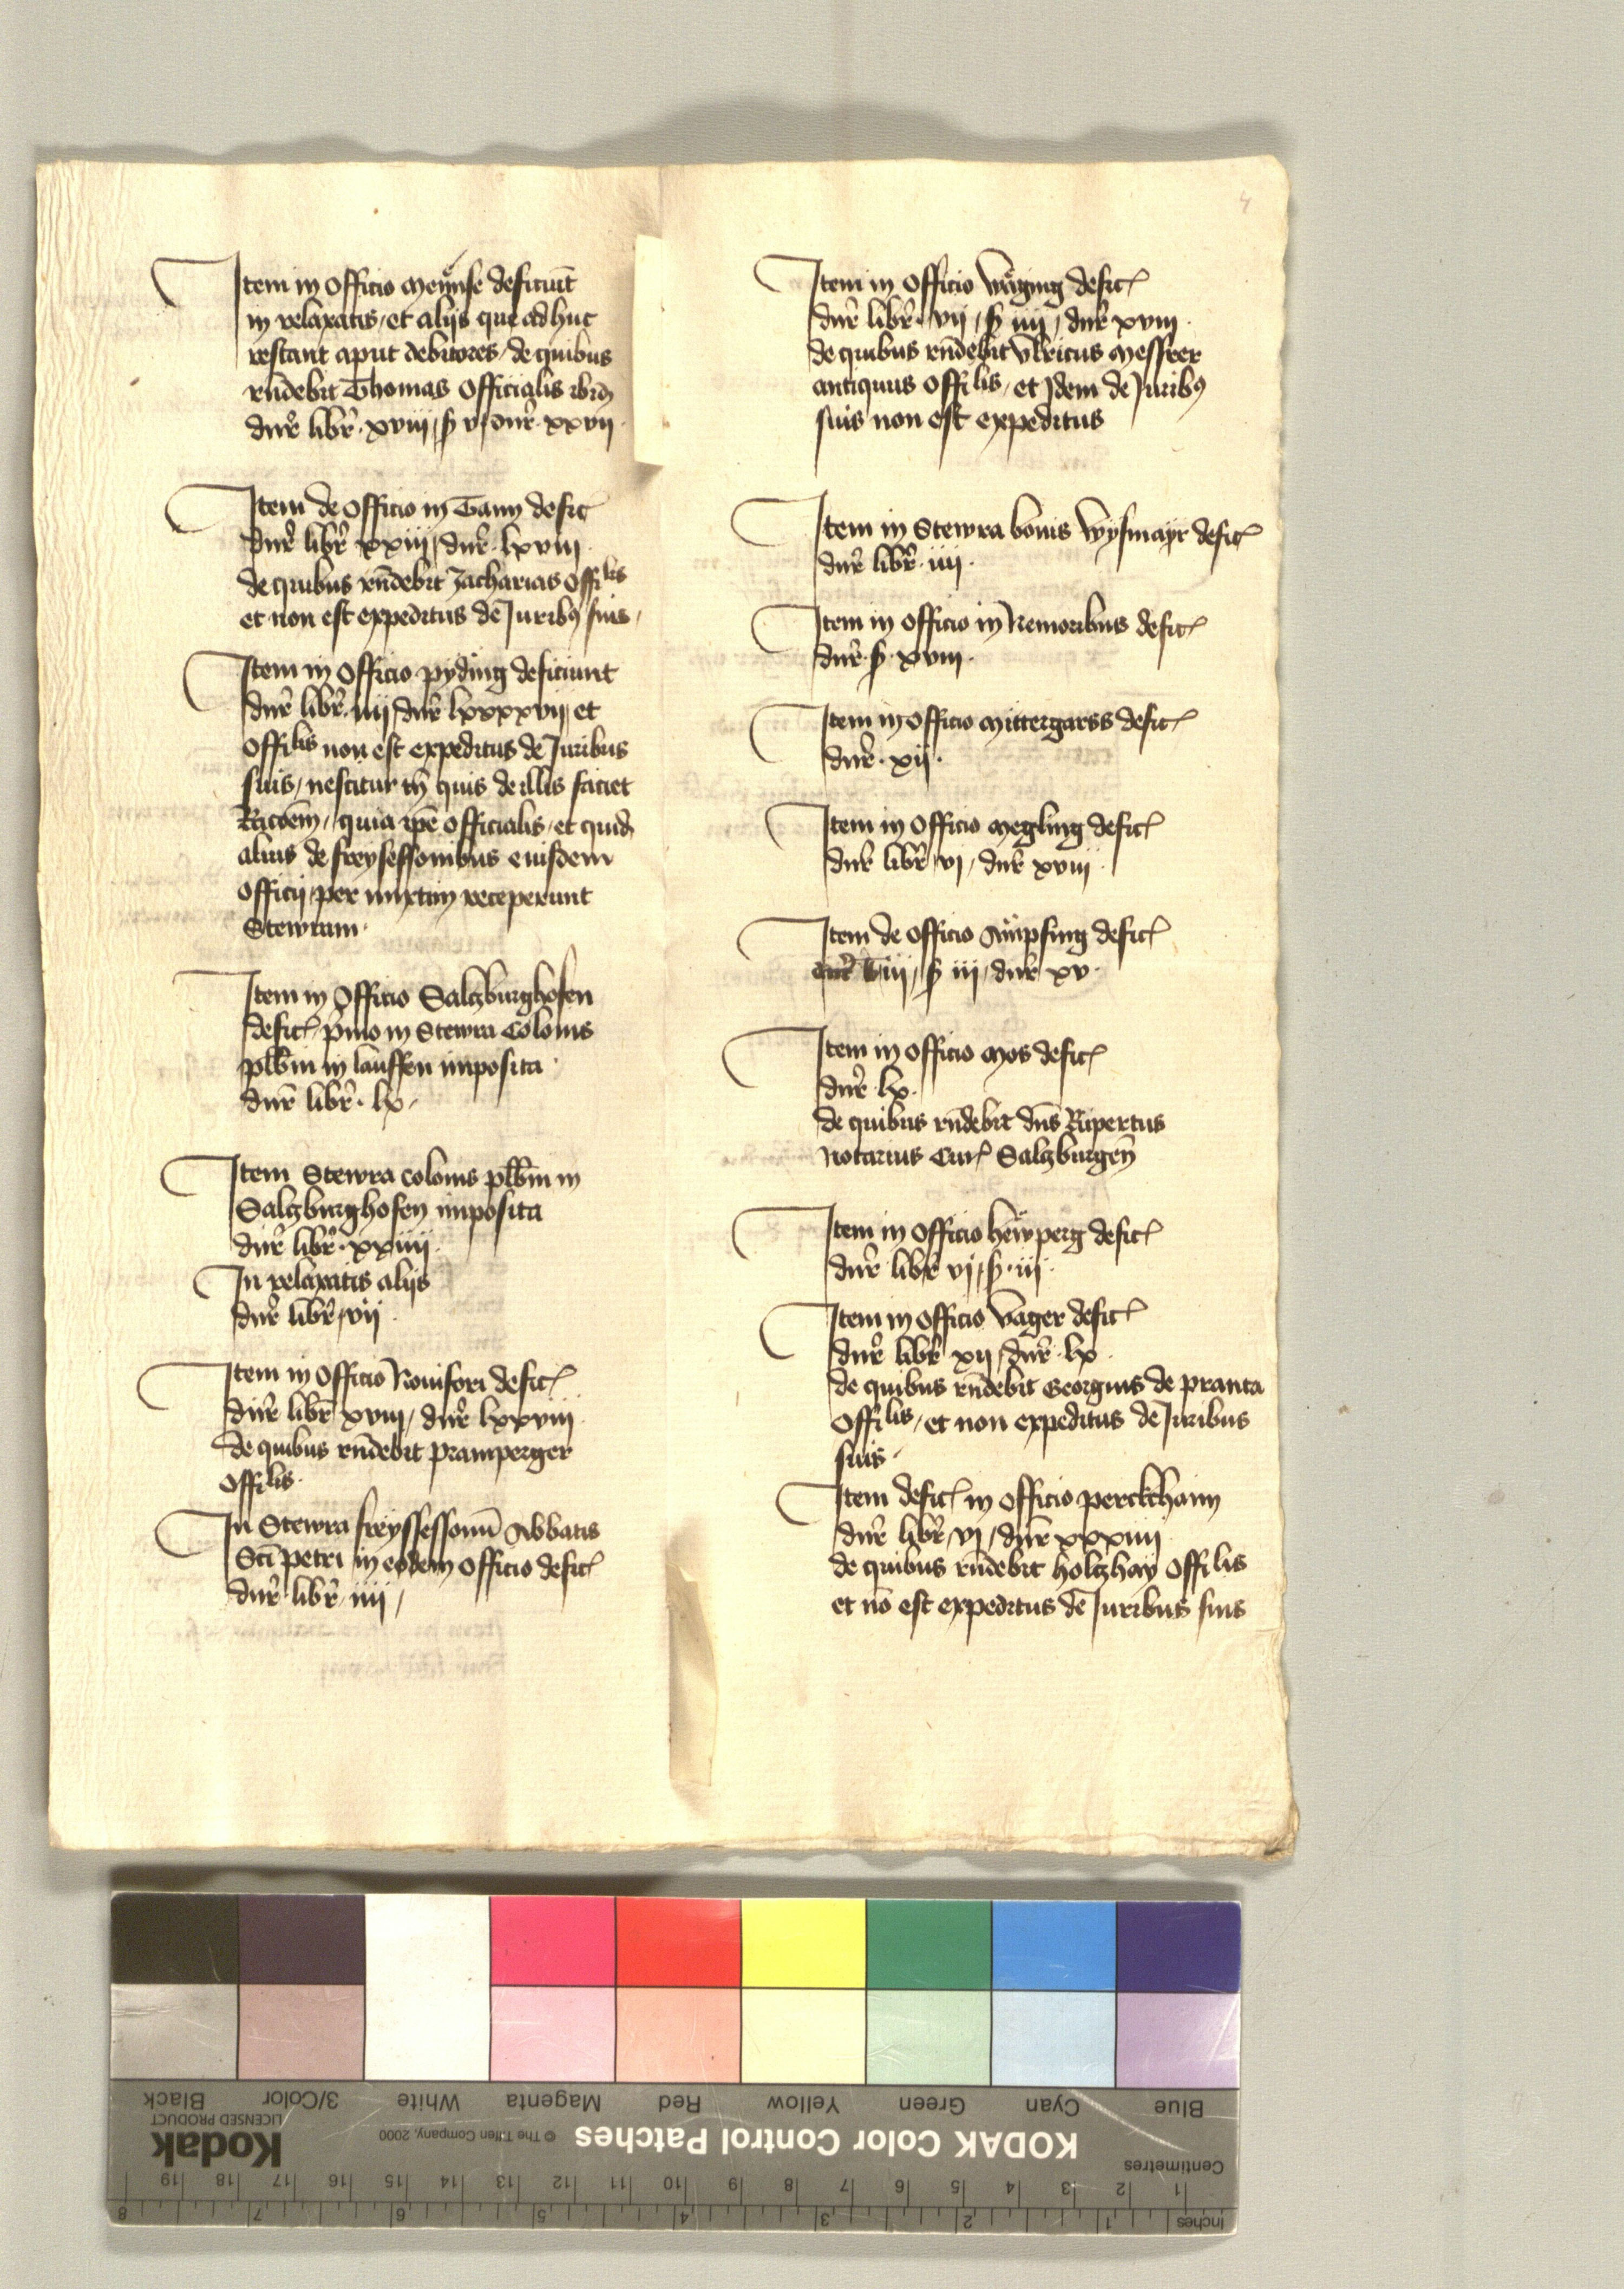 4
Item in Officio Meynse deficiūt
in relaxatis, et alijs que adhuc
restant aput debitores, de quibus
rn̄debit Thomas Officialis ibid
dnr̄ libr̄. xviij, ꝭ v dnr̄. xxvij.
Item de Officio in Tann defic̄
dnr̄ libr̄ xxiij, dnr̄. lxviij.
de quibus rn̄debit Zacharias Offilis
et non est expeditus de Juribꝫ suis,
Item in Officio pyding deficiunt
dnr̄ libr̄. iiij, dnr̄ lxxxxvij, et
Offilis non est expeditus de Juribus
suis, nescitur tn̄ quis de illis faciet
Racōem, quia ip̄e officialis, et quid
alius de freysessonibus eiusdem
Officij, per mixtim receperunt
Stewram.
Item in Officio Salczburghofen
defic̄ p̄mo in Stewra Colonis
plb̄m in lauffen imposita
dnr̄ libr̄. lx,
Item Stewra colonis plb̄m in
Salczburghofen imposita
dnr̄ libr̄. xxiiij.
In relaxatis alijs
dnr̄ libr̄, vij.
Item in Officio Nouifori defic̄
dnr̄ libr̄ xviij, dnr̄ lxxviij.
de quibus rn̄debit pramperger
Offilis.
In Stewra freyssessonū Abbatis
Sc̄i petri in eodem officio defic̄
dnr̄ libr̄ iiij,
Item in Officio Wäging defic̄
dnr̄ libr̄. vij, ꝭ iiij, dnr̄ xviij.
de quibus rn̄debit Vlricus Messrer
antiquus Offilis, et Idem de Juribꝫ
suis non est expeditus
Item in Stewra bonis Wysmayr defic̄
dnr̄ libr̄. iiij.
Item in Officio in Nemoribus defic̄
dnr̄. ꝭ. xviij.
Item in Officio Mittergarss defic̄
dnr̄. xij.
Item in Officio Megling defic̄
dnr̄ libr̄, vj, dnr̄ xviij.
Item de Officio Ampfing defic̄
iij, ꝭ iij, dnr̄ xv.
Item in Officio Mos defic̄
dnr̄ lx.
de quibus rn̄debit dn̄s Rupertus
Notarius Cur̄ Salczburgen̄
Item in Officio hewperg defic̄
dnr̄ libr̄ vj, ꝭ. iij.
Item in Officio Vager defic̄
dnr̄ libr̄ xij, dnr̄. lx.
de quibus rn̄debit Georgius de pranta
Offilis, et non expeditus de Juribus
suis.
Item defic̄ in Officio perckhaim
dnr̄ libr̄, vj, dnr̄ xxxiiij.
de quibus rn̄debit holczhay Offilis
et nō est expeditus de Juribus suis
Black
3/Color
White
Magenta
Red
Yellow
Green
Cyan
Blue
Kodak
LICENSED PRODUCT
© The Tiffen Company, 2000
KODAK Color Control Patches
Centimetres
1 2 3 4 5 6 7 8 9 10 11 12 13 14 15 16 17 18 19
Inches
1 2 3 4 5 6 7 8